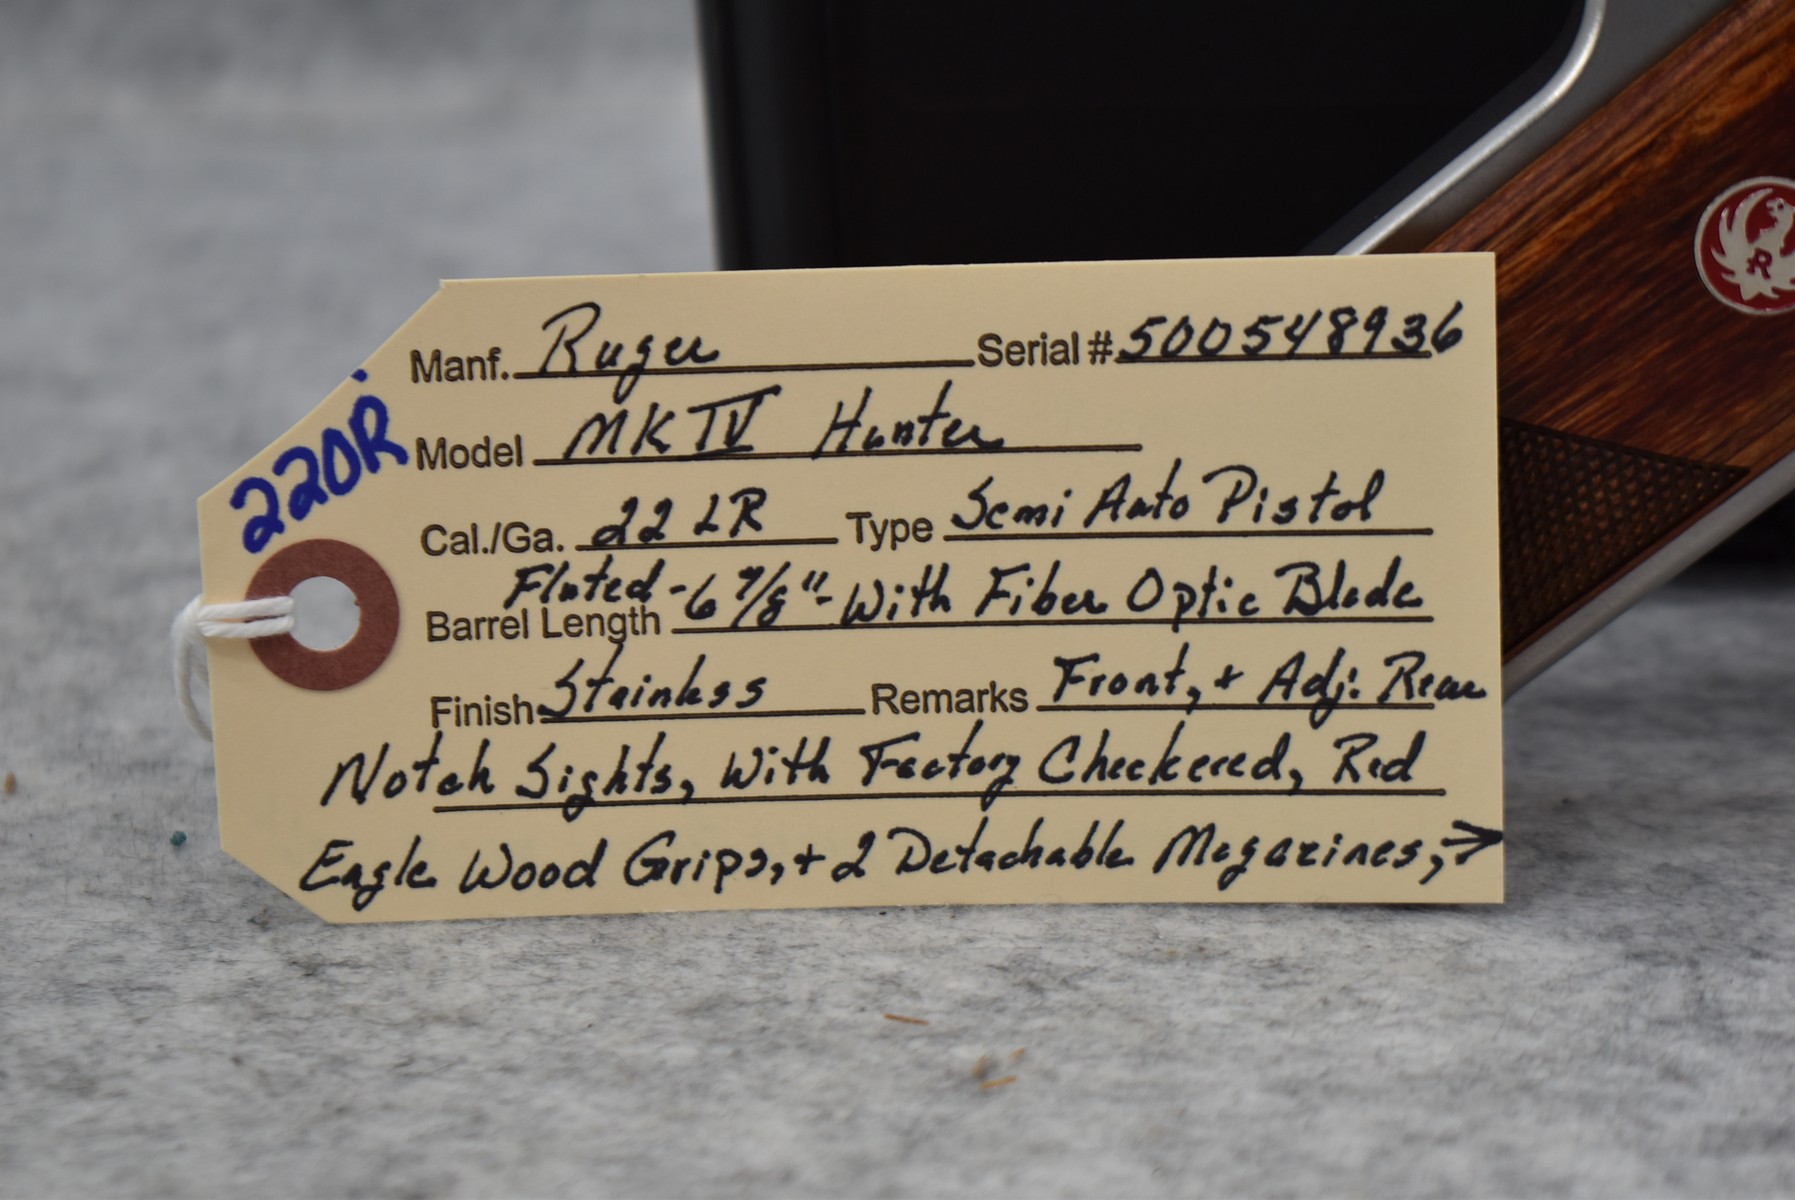 220R
Manf. Ruger Serial # 500548936
Model MK IV Hunter
Cal./Ga. 22 LR Type Semi Auto Pistol
Barrel Length Fluted - 6 7/8" - With Fiber Optic Blade
Finish Stainless Remarks Front, + Adj. Rear
Notch Sights, With Factory Checkered, Red
Eagle Wood Grips, + 2 Detachable Magazines, →
R